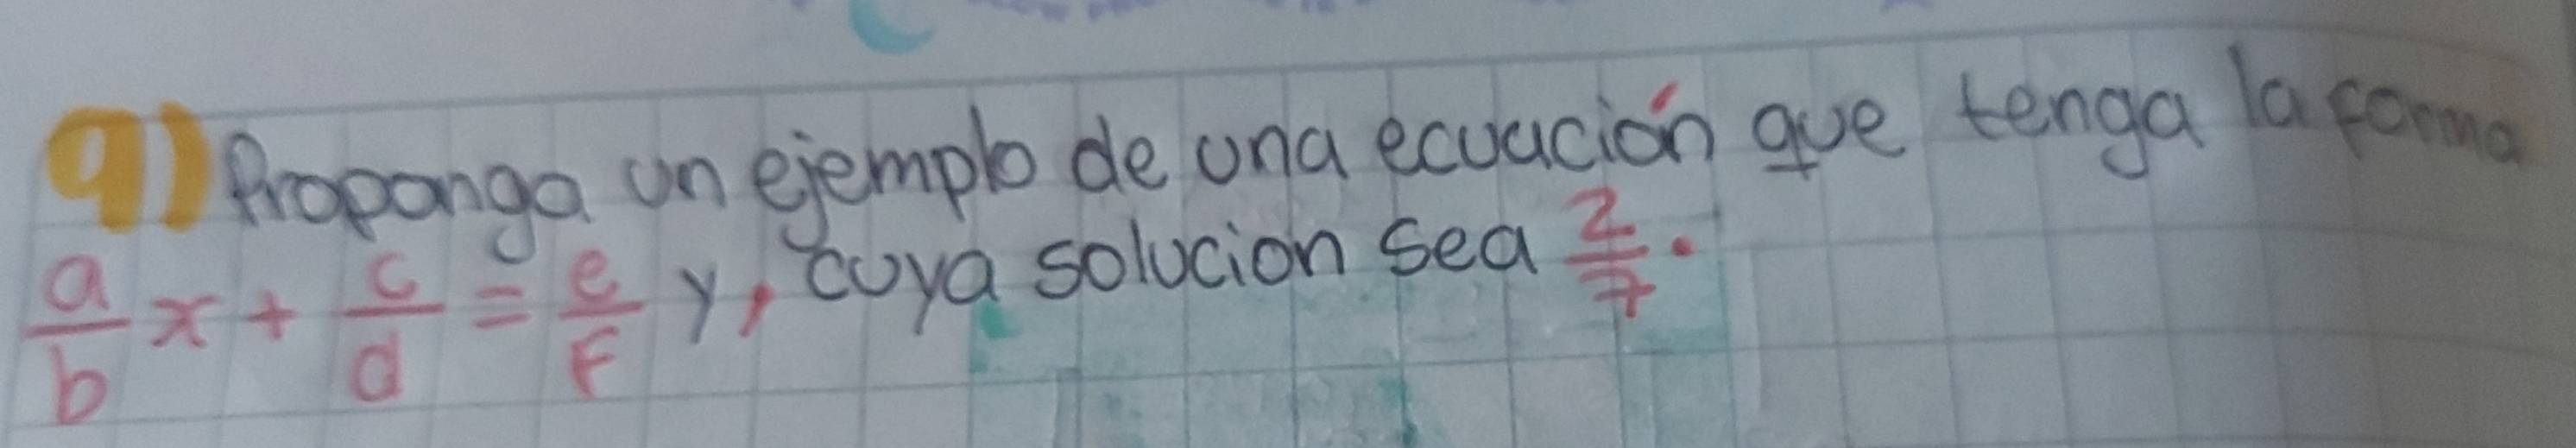 9) Proponga un ejemplo de una ecuación que tenga la forma
a/b x + c/d = e/F y, cuya solucion sea 2/7.